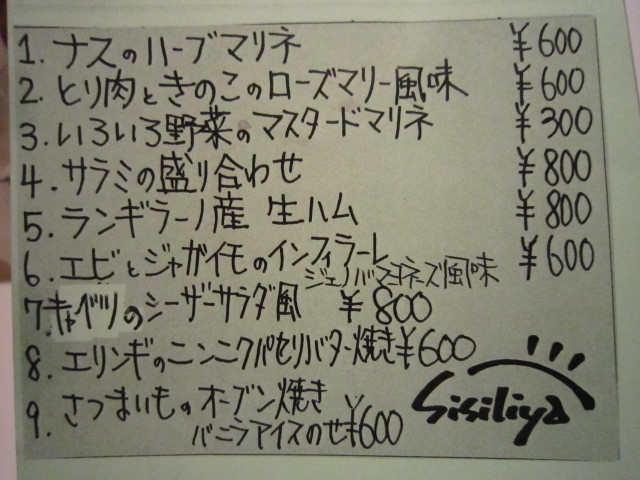 1. ナスのハーブマリネ ¥600
2. とり肉ときのこのローズマリー風味 ¥600
3. いろいろ野菜のマスタードマリネ ¥300
4. サラミの盛り合わせ ¥800
5. ランギラーノ産 生ハム ¥800
6. エビとジャガイモのインフィラーレ ¥600
ジェノバマヨネーズ風味
7. キャベツのシーザーサラダ風 ¥800
8. エリンギのニンニクパセリバター焼き ¥600
9. さつまいものオーブン焼き
バニラアイスのせ ¥600
Sisiliya